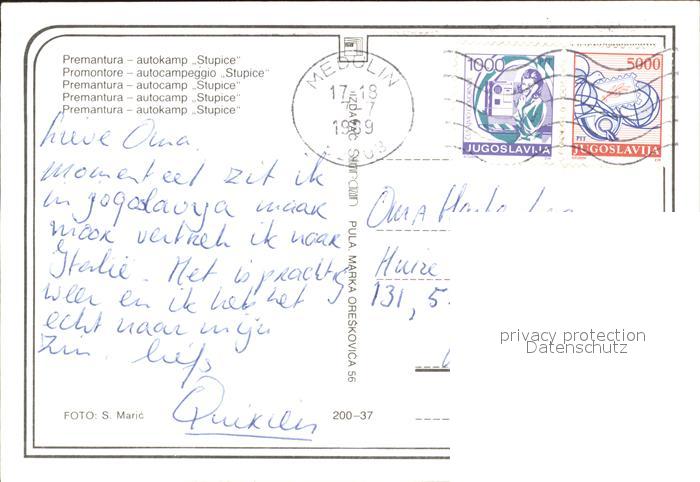 Premantura – autokamp „Stupice"
Promontore – autocampeggio „Stupice"
Premantura – autocamp „Stupice"
Premantura – autocamp „Stupice"
Premantura – autokamp „Stupice"
lieve Oma.
momenteel zit ik
in Jogoslavija maar
moor vertrek ik naar
Italië. Het is prachtig
weer en ik heb het
echt naar mijn
zin. liefs
FOTO: S. Marić
200–37
PULA, MARKA OREŠKOVIĆA 56
MEDULIN
17-18
7
1989
1000
JUGOSLAVIJA
5000
PTT
JUGOSLAVIJA
Oma
Huize
131, 5
privacy protection
Datenschutz